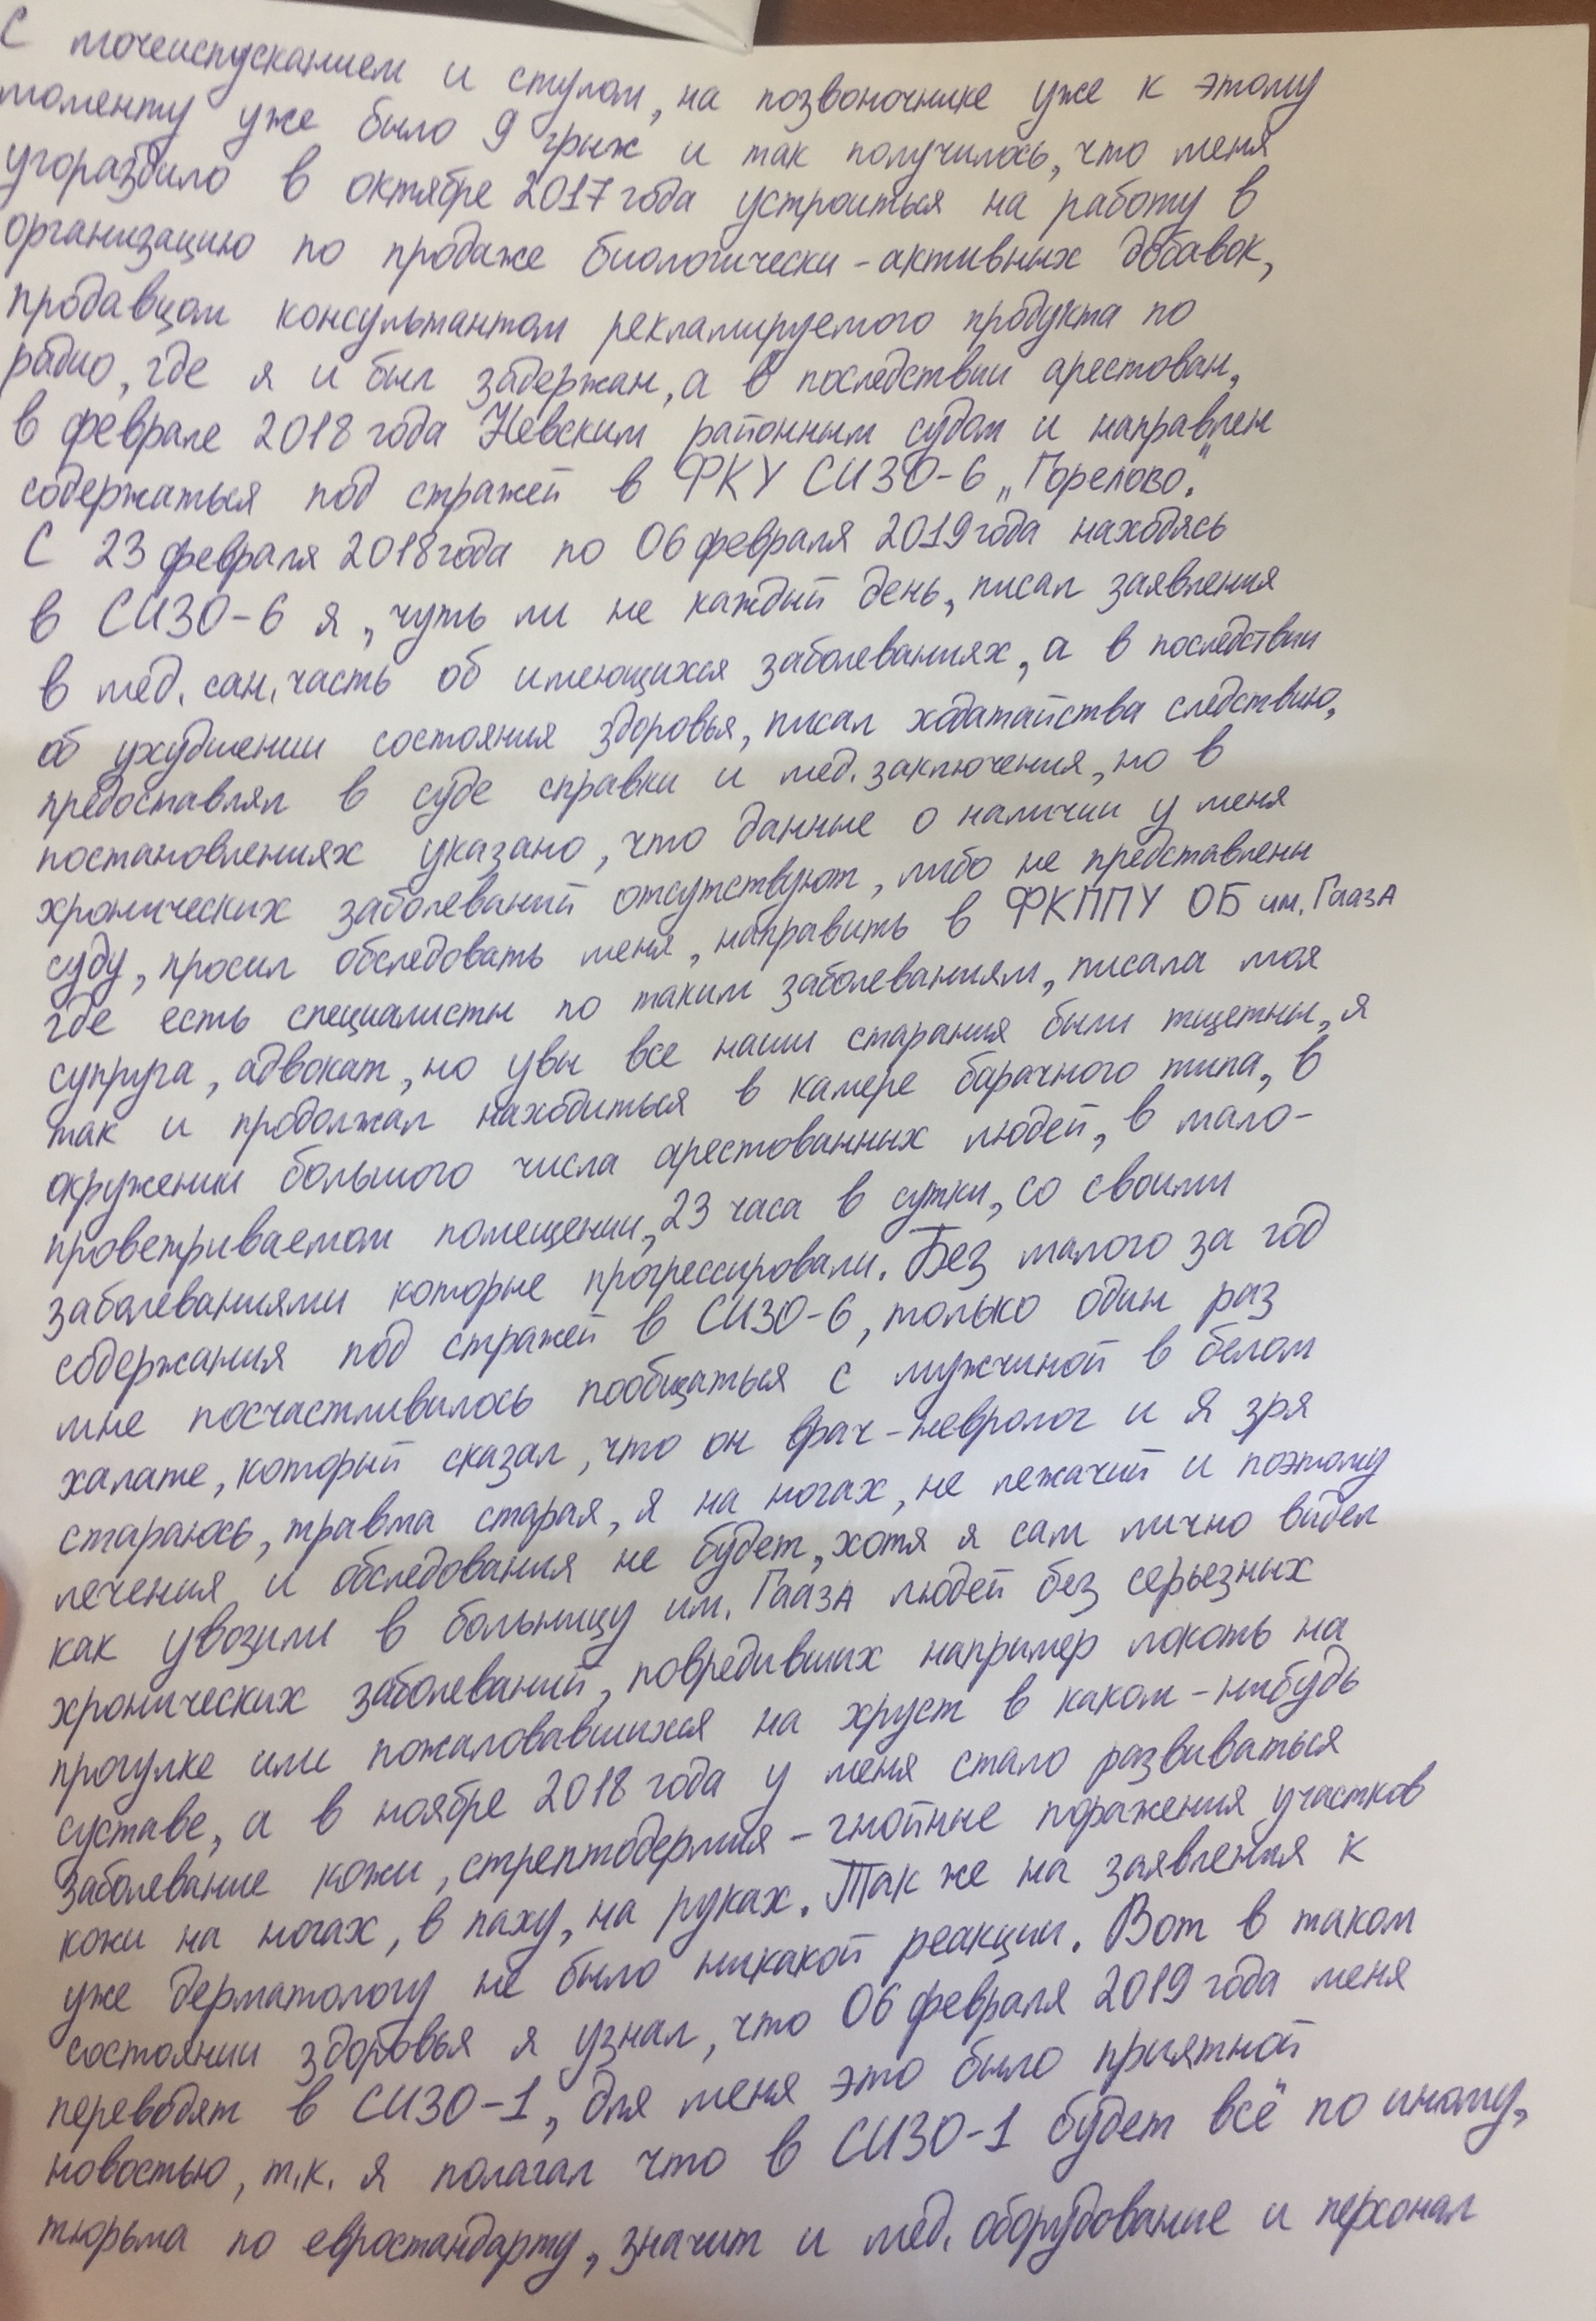 С мочеиспусканием и стулом, на позвоночнике уже к этому
моменту уже было 9 грыж и так получилось, что меня
угораздило в октябре 2017 года устроиться на работу в
организацию по продаже биологически-активных добавок,
продавцом консультантом рекламируемого продукта по
радио, где я и был задержан, а в последствии арестован,
в феврале 2018 года Невским районным судом и направлен
содержаться под стражей в ФКУ СИЗО-6 „Горелово“.
С 23 февраля 2018 года по 06 февраля 2019 года находясь
в СИЗО-6 я, чуть ли не каждый день, писал заявления
в мед. сан. часть об имеющихся заболеваниях, а в последствии
об ухудшении состояния здоровья, писал ходатайства следствию,
предоставлял в суде справки и мед. заключения, но в
постановлениях указано, что данные о наличии у меня
хронических заболеваний отсутствуют, либо не представлены
суду, просил обследовать меня, направить в ФКППУ ОБ им. ГаазА
где есть специалисты по таким заболеваниям, писала моя
супруга, адвокат, но увы все наши старания были тщетны, я
так и продолжал находиться в камере барачного типа, в
окружении большого числа арестованных людей, в мало-
проветриваемом помещении, 23 часа в сутки, со своими
заболеваниями которые прогрессировали. Без малого за год
содержания под стражей в СИЗО-6, только один раз
мне посчастливилось пообщаться с мужчиной в белом
халате, который сказал, что он врач-невролог и я зря
стараюсь, травма старая, я на ногах, не лежачий и поэтому
лечения и обследования не будет, хотя я сам лично видел
как увозили в больницу им. ГаазА людей без серьезных
хронических заболеваний, повредивших например локоть на
прогулке или пожаловавшихся на хруст в каком-нибудь
суставе, а в ноябре 2018 года у меня стало развиваться
заболевание кожи, стрептодермия - гнойные поражения участков
кожи на ногах, в паху, на руках. Так же на заявления к
уже дерматологу не было никакой реакции. Вот в таком
состоянии здоровья я узнал, что 06 февраля 2019 года меня
переводят в СИЗО-1, для меня это было приятной
новостью, т.к. я полагал что в СИЗО-1 будет всё по иному,
тюрьма по евростандарту, значит и мед. оборудование и персонал